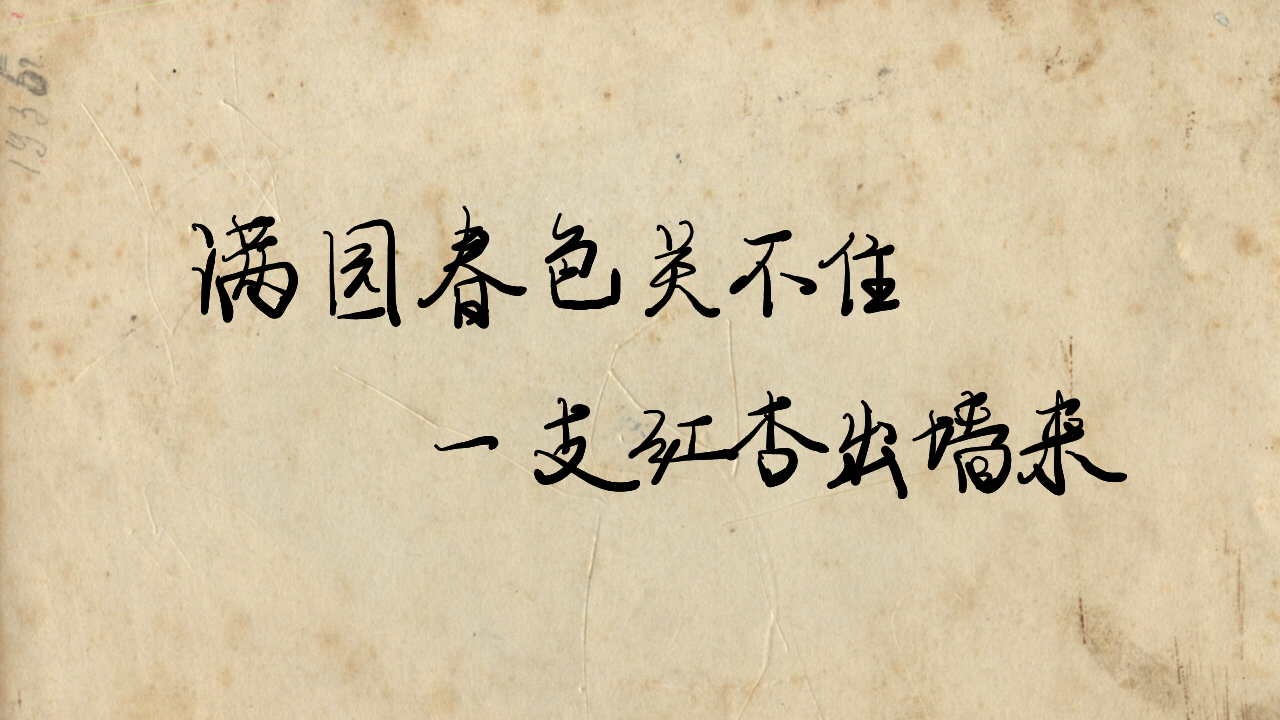 满园春色关不住
一支红杏出墙来